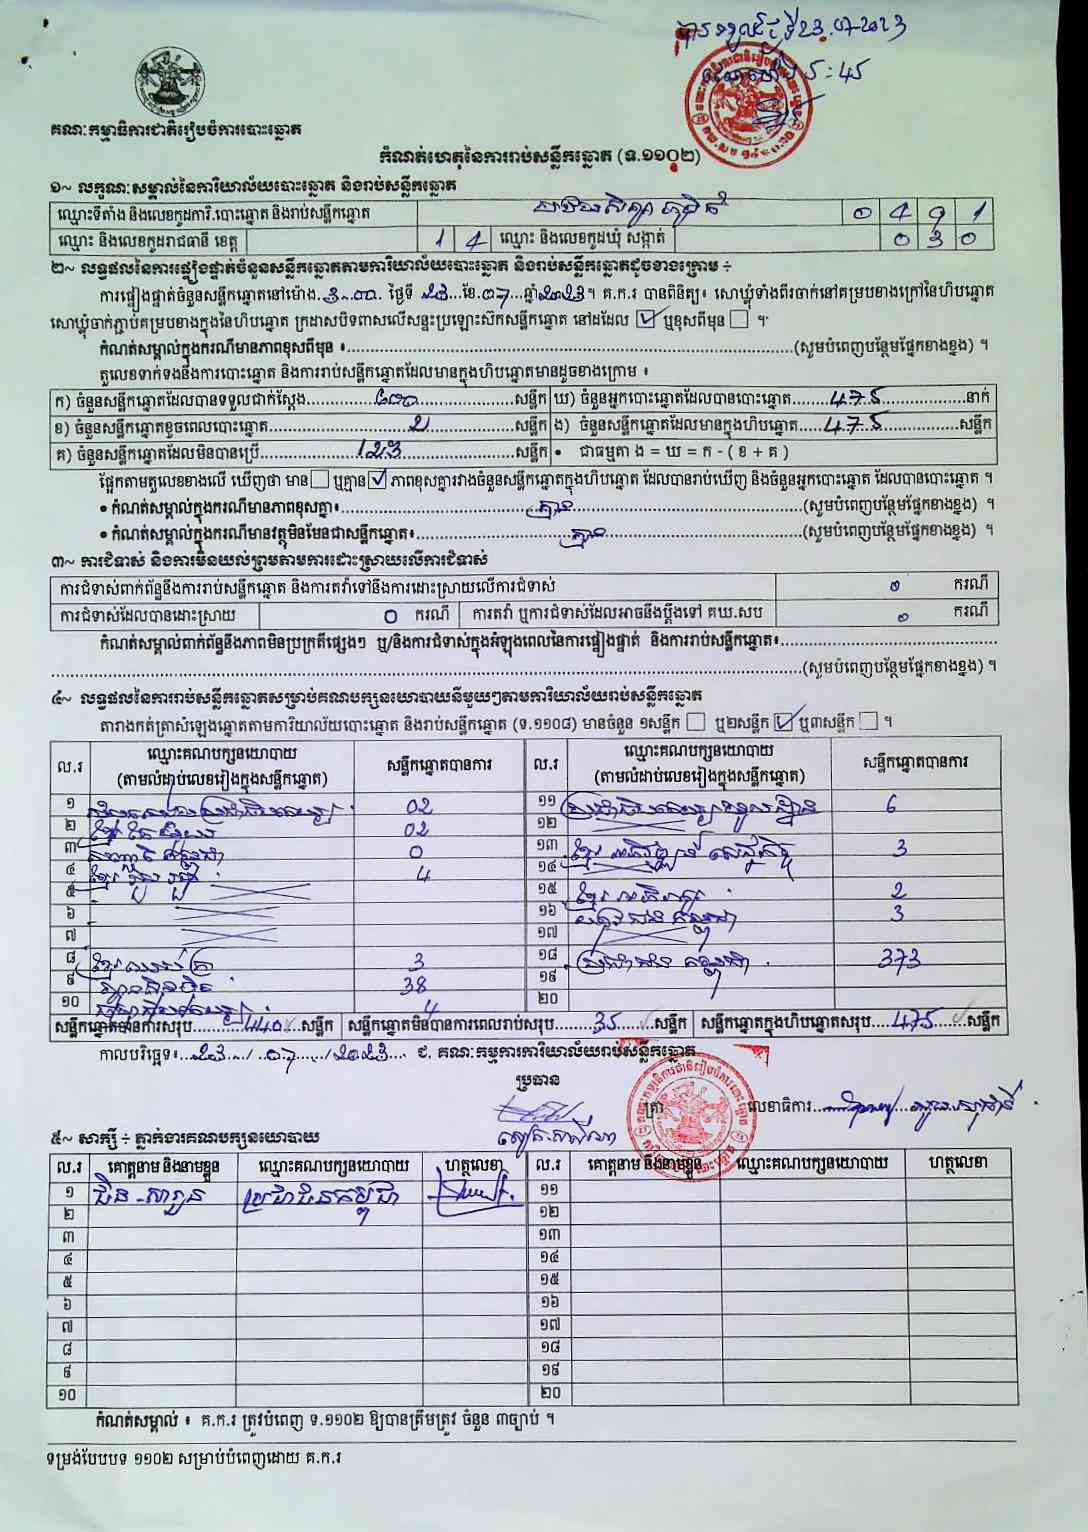 បានទទួលថ្ងៃទី23.07.2023
5:45
គណៈកម្មាធិការជាតិរៀបចំការបោះឆ្នោត
កំណត់ហេតុនៃការរាប់សន្លឹកឆ្នោត (ទ.១១០២)
១~ លក្ខណៈសម្គាល់នៃការិយាល័យបោះឆ្នោត និងរាប់សន្លឹកឆ្នោត
ឈ្មោះទីតាំង និងលេខកូដការិ.បោះឆ្នោត និងរាប់សន្លឹកឆ្នោត 0 4 9 1
ឈ្មោះ និងលេខកូដរាជធានី ខេត្ត 1 4 ឈ្មោះ និងលេខកូដឃុំ សង្កាត់ 0 3 0
២~ លទ្ធផលនៃការផ្ទៀងផ្ទាត់ចំនួនសន្លឹកឆ្នោតតាមការិយាល័យបោះឆ្នោត និងរាប់សន្លឹកឆ្នោតដូចខាងក្រោម ÷
ការផ្ទៀងផ្ទាត់ចំនួនសន្លឹកឆ្នោតនៅម៉ោង 3-00 ថ្ងៃទី 23 ខែ 07 ឆ្នាំ 2023 ។ គ.ក.រ បានពិនិត្យ៖ សោឃ្លុំទាំងពីរចាក់នៅគម្របខាងក្រៅនៃហិបឆ្នោត
សោឃ្លុំចាក់ភ្ជាប់គម្របខាងក្នុងនៃហិបឆ្នោត ក្រដាសបិទពាសលើសន្ទះប្រឡោះស៊កសន្លឹកឆ្នោត នៅដដែល ☑ ឬខុសពីមុន ☐ ។
កំណត់សម្គាល់ក្នុងករណីមានភាពខុសពីមុន ៖ (សូមបំពេញបន្ថែមផ្នែកខាងខ្នង) ។
តួលេខទាក់ទងនឹងការបោះឆ្នោត និងការរាប់សន្លឹកឆ្នោតដែលមានក្នុងហិបឆ្នោតមានដូចខាងក្រោម ៖
ក) ចំនួនសន្លឹកឆ្នោតដែលបានទទួលជាក់ស្តែង 600 សន្លឹក ឃ) ចំនួនអ្នកបោះឆ្នោតដែលបានបោះឆ្នោត 475 នាក់
ខ) ចំនួនសន្លឹកឆ្នោតខូចពេលបោះឆ្នោត 2 សន្លឹក ង) ចំនួនសន្លឹកឆ្នោតដែលមានក្នុងហិបឆ្នោត 475 សន្លឹក
គ) ចំនួនសន្លឹកឆ្នោតដែលមិនបានប្រើ 123 សន្លឹក • ជាធម្មតា ង = ឃ = ក - ( ខ + គ )
ផ្អែកតាមតួលេខខាងលើ ឃើញថា មាន ☐ ឬគ្មាន ☑ ភាពខុសគ្នារវាងចំនួនសន្លឹកឆ្នោតក្នុងហិបឆ្នោត ដែលបានរាប់ឃើញ និងចំនួនអ្នកបោះឆ្នោត ដែលបានបោះឆ្នោត ។
• កំណត់សម្គាល់ក្នុងករណីមានភាពខុសគ្នា៖ គ្មាន (សូមបំពេញបន្ថែមផ្នែកខាងខ្នង) ។
• កំណត់សម្គាល់ក្នុងករណីមានវត្ថុមិនមែនជាសន្លឹកឆ្នោត៖ គ្មាន (សូមបំពេញបន្ថែមផ្នែកខាងខ្នង) ។
៣~ ការជំទាស់ និងការមិនយល់ព្រមតាមការដោះស្រាយលើការជំទាស់
ការជំទាស់ពាក់ព័ន្ធនឹងការរាប់សន្លឹកឆ្នោត និងការតវ៉ាទៅនឹងការដោះស្រាយលើការជំទាស់ 0 ករណី
ការជំទាស់ដែលបានដោះស្រាយ 0 ករណី ការតវ៉ា ឬការជំទាស់ដែលអាចនឹងប្តឹងទៅ គឃ.សប 0 ករណី
កំណត់សម្គាល់ពាក់ព័ន្ធនឹងភាពមិនប្រក្រតីផ្សេងៗ ឬ/និងការជំទាស់ក្នុងអំឡុងពេលនៃការផ្ទៀងផ្ទាត់ និងការរាប់សន្លឹកឆ្នោត៖
(សូមបំពេញបន្ថែមផ្នែកខាងខ្នង) ។
៤~ លទ្ធផលនៃការរាប់សន្លឹកឆ្នោតសម្រាប់គណបក្សនយោបាយនីមួយៗតាមការិយាល័យរាប់សន្លឹកឆ្នោត
តារាងកត់ត្រាសំឡេងឆ្នោតតាមការិយាល័យបោះឆ្នោត និងរាប់សន្លឹកឆ្នោត (ទ.១១០៨) មានចំនួន ១សន្លឹក ☐ ឬ២សន្លឹក ☑ ឬ៣សន្លឹក ☐ ។
ល.រ ឈ្មោះគណបក្សនយោបាយ (តាមលំដាប់លេខរៀងក្នុងសន្លឹកឆ្នោត) សន្លឹកឆ្នោតបានការ ល.រ ឈ្មោះគណបក្សនយោបាយ (តាមលំដាប់លេខរៀងក្នុងសន្លឹកឆ្នោត) សន្លឹកឆ្នោតបានការ
១ 02 ១១ 6
២ 02 ១២
៣ 0 ១៣ ខ្មែរអភិវឌ្ឍន៍សេដ្ឋកិច្ច 3
៤ ខ្មែររួបរួមជាតិ 4 ១៤
៥ ១៥ 2
៦ ១៦ 3
៧ ១៧
៨ ខ្មែរឈប់ក្រ 3 ១៨ ប្រជាជនកម្ពុជា 373
៩ ហ៊្វុនស៊ិនប៉ិច 38 ១៩
១០ 4 ២០
សន្លឹកឆ្នោតបានការសរុប 440 សន្លឹក សន្លឹកឆ្នោតមិនបានការពេលរាប់សរុប 35 សន្លឹក សន្លឹកឆ្នោតក្នុងហិបឆ្នោតសរុប 475 សន្លឹក
កាលបរិច្ឆេទ៖ 23 / 07 / 2023 ជ. គណៈកម្មការការិយាល័យរាប់សន្លឹកឆ្នោត
ប្រធាន
ត្រា លេខាធិការ
៥~ សាក្សី ÷ ភ្នាក់ងារគណបក្សនយោបាយ
ល.រ គោត្តនាម និងនាមខ្លួន ឈ្មោះគណបក្សនយោបាយ ហត្ថលេខា ល.រ គោត្តនាម និងនាមខ្លួន ឈ្មោះគណបក្សនយោបាយ ហត្ថលេខា
១ ជិន សារួន ប្រជាជនកម្ពុជា ១១
២ ១២
៣ ១៣
៤ ១៤
៥ ១៥
៦ ១៦
៧ ១៧
៨ ១៨
៩ ១៩
១០ ២០
កំណត់សម្គាល់ ៖ គ.ក.រ ត្រូវបំពេញ ទ.១១០២ ឱ្យបានត្រឹមត្រូវ ចំនួន ៣ច្បាប់ ។
ទម្រង់បែបបទ ១១០២ សម្រាប់បំពេញដោយ គ.ក.រ